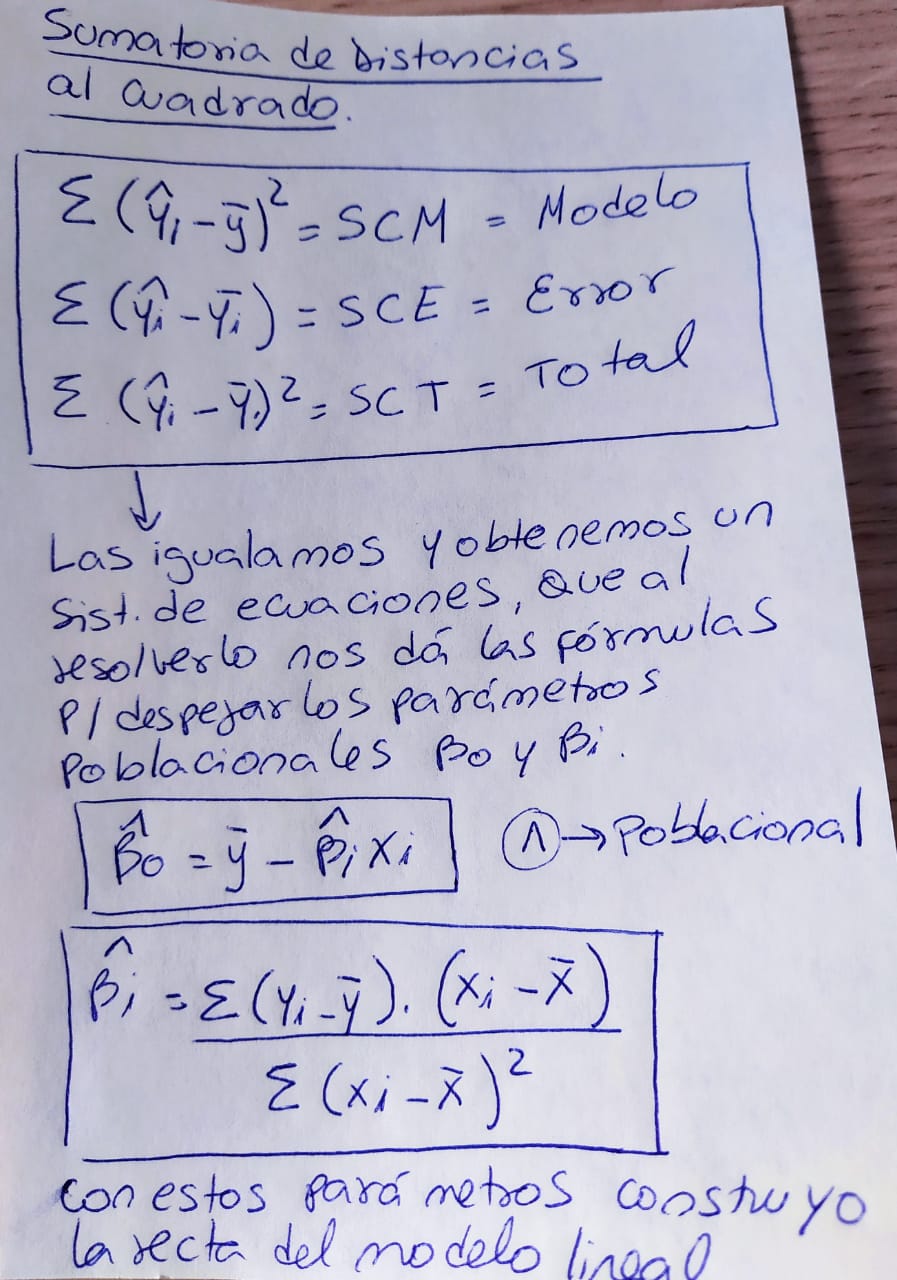 Sumatoria de Distancias
al cuadrado.
Σ (ŷi - ȳ)² = SCM = Modelo
Σ (ŷi - ȳi) = SCE = Error
Σ (ŷi - ȳi)² = SCT = Total
↓
Las igualamos y obtenemos un
sist. de ecuaciones, que al
resolverlo nos dá las fórmulas
P/ despejar los parámetros
Poblacionales βo y βi.
β̂o = ȳ - β̂i xi
^ → Poblacional
β̂i = Σ (yi - ȳ) . (xi - x̄)
Σ (xi - x̄)²
con estos parámetros construyo
la recta del modelo lineal